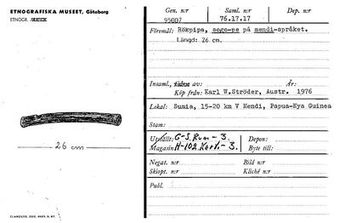 ETNOGRAFISKA MUSEET, Göteborg
ETNOGR. MUSEUM
26 cm
Gen. n:r
Saml. n:r
Dep. n:r
95007
76.17.17
Föremål: Rökpipa, sogo-pe på mendi-språket.
Längd: 26 cm.
Insaml.
Av:
År:
Köp från: Karl W.Ströder, Austr. 1976
Lokal: Sumia, 15-20 km V Mendi, Papua-Nya Guinea
Stam:
Utställt: G-S. Rum - 3.
Depon:
Magasin: H-102 Kort. - 3.
Bytt till:
Negat. n:r
Bild n:r
Skiopt. n:r
Kliché n:r
Publ.